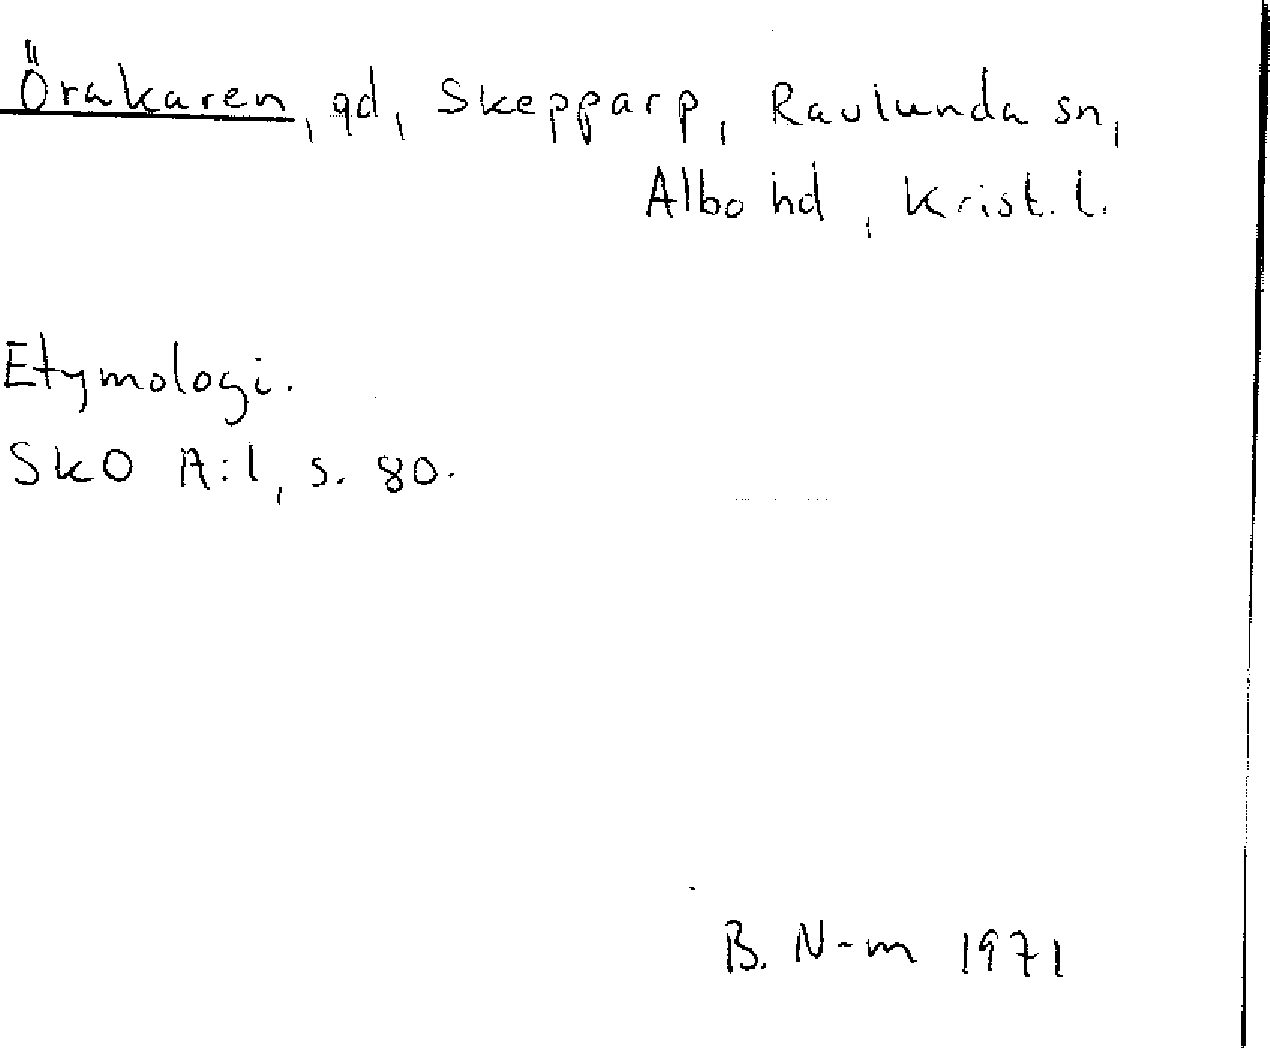 Örakaren, gd, Skepparp, Ravlunda sn,
Albo hd, Krist. l.
Etymologi.
SkO A:1, s. 80.
B. N-m 1971